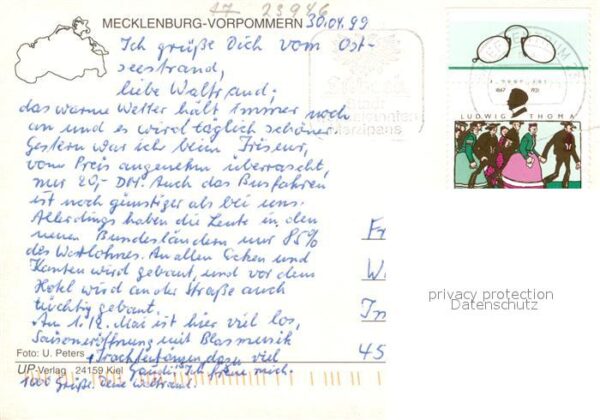 17 23946
MECKLENBURG-VORPOMMERN 30.04.99
Ich grüße Dich vom Ost-
seestrand,
liebe Waltraud;
das warme Wetter hält immer noch
an und es wird täglich schöner
Gestern war ich beim Friseur,
vom Preis angenehm überrascht,
nur 20,- DM. Auch das Busfahren
ist noch günstiger als bei uns.
Allerdings haben die Leute in den
neuen Bundesländern nur 85%
des Westlohnes. An allen Ecken und
Kanten wird gebaut, und vor dem
Hotel wird an der Straße auch
tüchtig gebaut.
Am 1./2. Mai ist hier viel los,
Saisoneröffnung mit Blasmusik
dazu viel
Gaudi. Ich freue mich.
1000 Grüße. Deine Waltraud.
Foto: U. Peters
UP-Verlag 24159 Kiel
Lübeck
Stadt
des
Marzipans
1867 1921
LUDWIG THOMA
Fr
W
In
45
privacy protection
Datenschutz